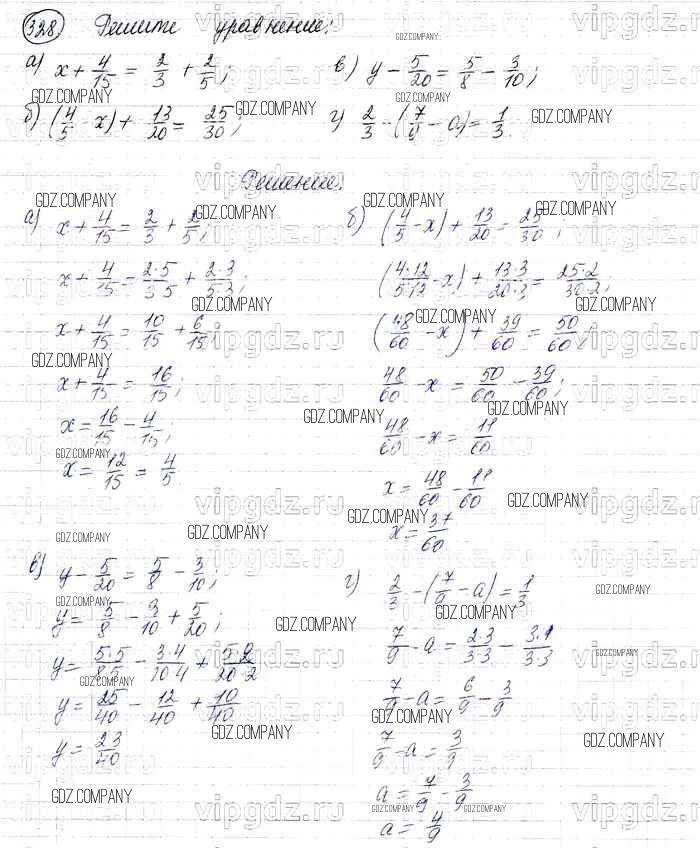 328 Решите уравнение:
а) x + 4/15 = 2/3 + 2/5; в) y - 5/20 = 5/8 - 3/10;
б) (4/5 - x) + 13/20 = 25/30; г) 2/3 - (7/9 - a) = 1/3.
Решение:
а) x + 4/15 = 2/3 + 2/5;
x + 4/15 = 2·5/3·5 + 2·3/5·3
x + 4/15 = 10/15 + 6/15;
x + 4/15 = 16/15;
x = 16/15 - 4/15;
x = 12/15 = 4/5
б) (4/5 - x) + 13/20 = 25/30;
(4·12/5·12 - x) + 13·3/20·3 = 25·2/30·2;
(48/60 - x) + 39/60 = 50/60;
48/60 - x = 50/60 - 39/60;
48/60 - x = 11/60
x = 48/60 - 11/60
x = 37/60
в) y - 5/20 = 5/8 - 3/10;
y = 5/8 - 3/10 + 5/20;
y = 5·5/8·5 - 3·4/10·4 + 5·2/20·2
y = 25/40 - 12/40 + 10/40
y = 23/40
г) 2/3 - (7/9 - a) = 1/3
7/9 - a = 2·3/3·3 - 3·1/3·3
7/9 - a = 6/9 - 3/9
7/9 - a = 3/9
a = 7/9 - 3/9
a = 4/9
GDZ.COMPANY
vipgdz.ru